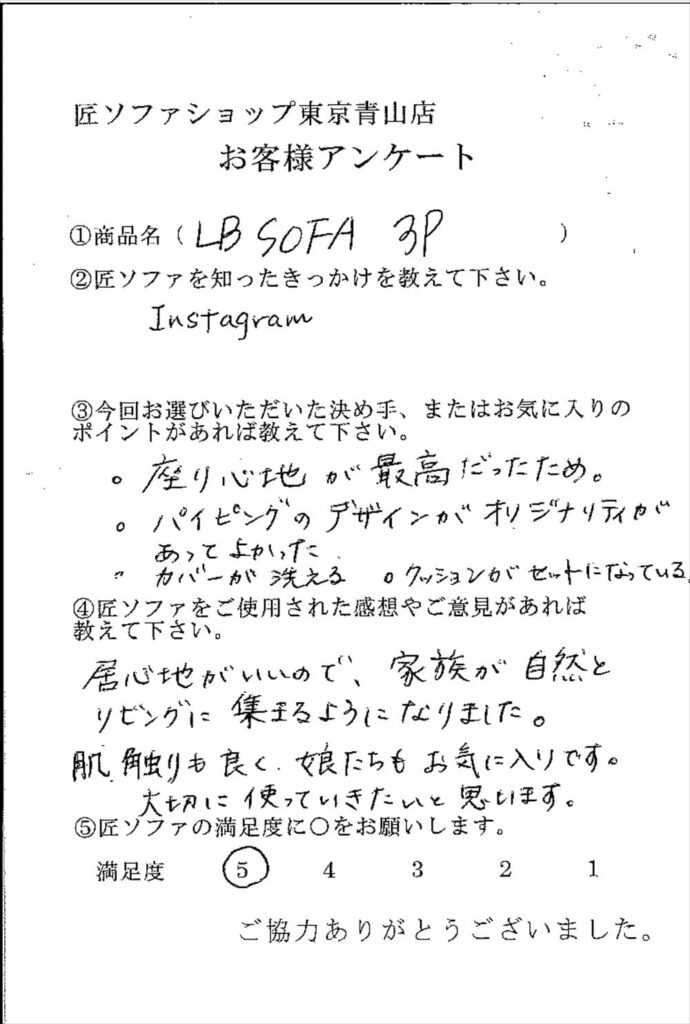 匠ソファショップ東京青山店
お客様アンケート
①商品名（ LBSOFA 3P ）
②匠ソファを知ったきっかけを教えて下さい。
Instagram
③今回お選びいただいた決め手、またはお気に入りの
ポイントがあれば教えて下さい。
。座り心地が最高だったため。
。パイピングのデザインがオリジナリティが
あってよかった
。カバーが洗える 。クッションがセットになっている。
④匠ソファをご使用された感想やご意見があれば
教えて下さい。
居心地がいいので、家族が自然と
リビングに集まるようになりました。
肌触りも良く、娘たちもお気に入りです。
大切に使っていきたいと思います。
⑤匠ソファの満足度に○をお願いします。
満足度 5 4 3 2 1
ご協力ありがとうございました。